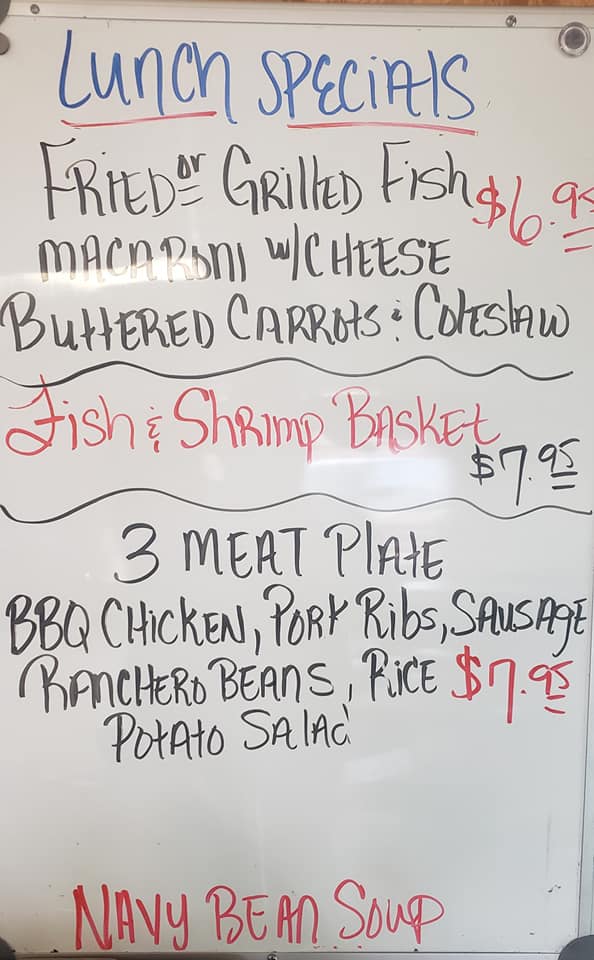 LUNCH SPECIALS
FRIED or GRILLED Fish $6.95
MACARONI W/CHEESE
BUTTERED CARROTS & COLESLAW
Fish & SHRIMP BASKET
$7.95
3 MEAT PLATE
BBQ CHICKEN, PORK RIBS, SAUSAGE
RANCHERO BEANS, RICE $7.95
POTATO SALAD
NAVY BEAN SOUP